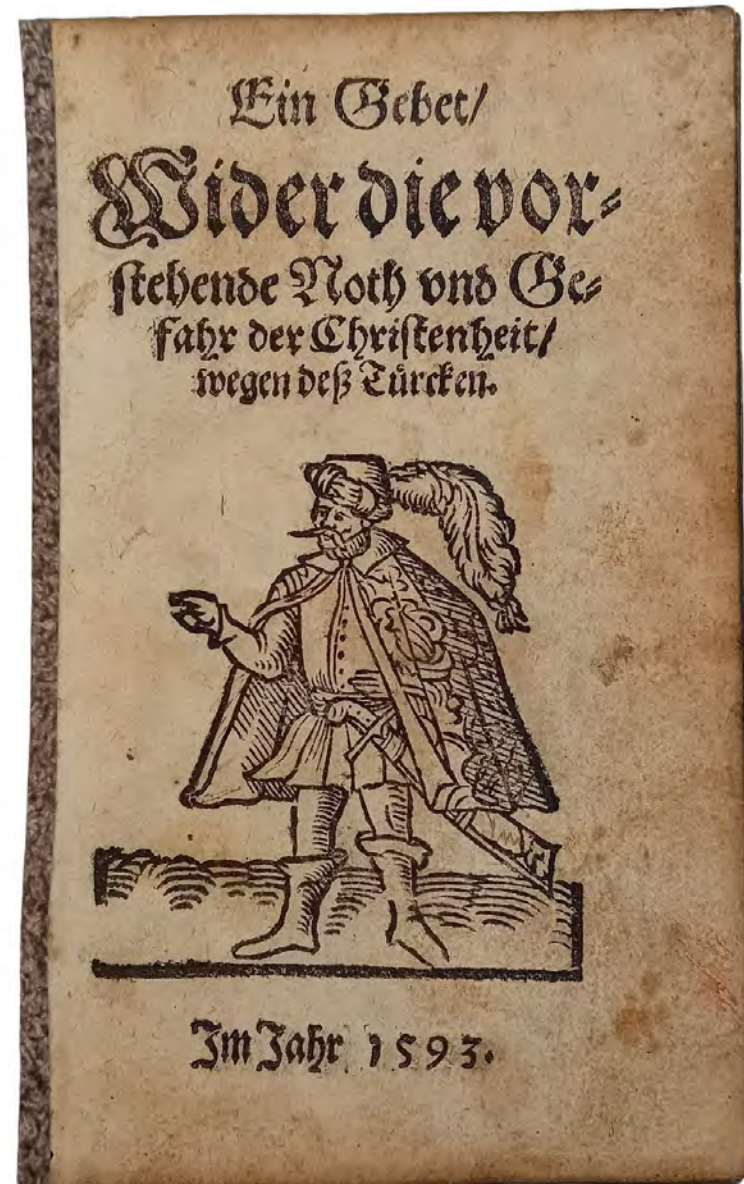 Ein Gebet/
Wider die vor⸗
ſtehende Noth vnd Ge⸗
fahr der Chriſtenheit/
wegen deß Türcken.
Im Jahr 1593.